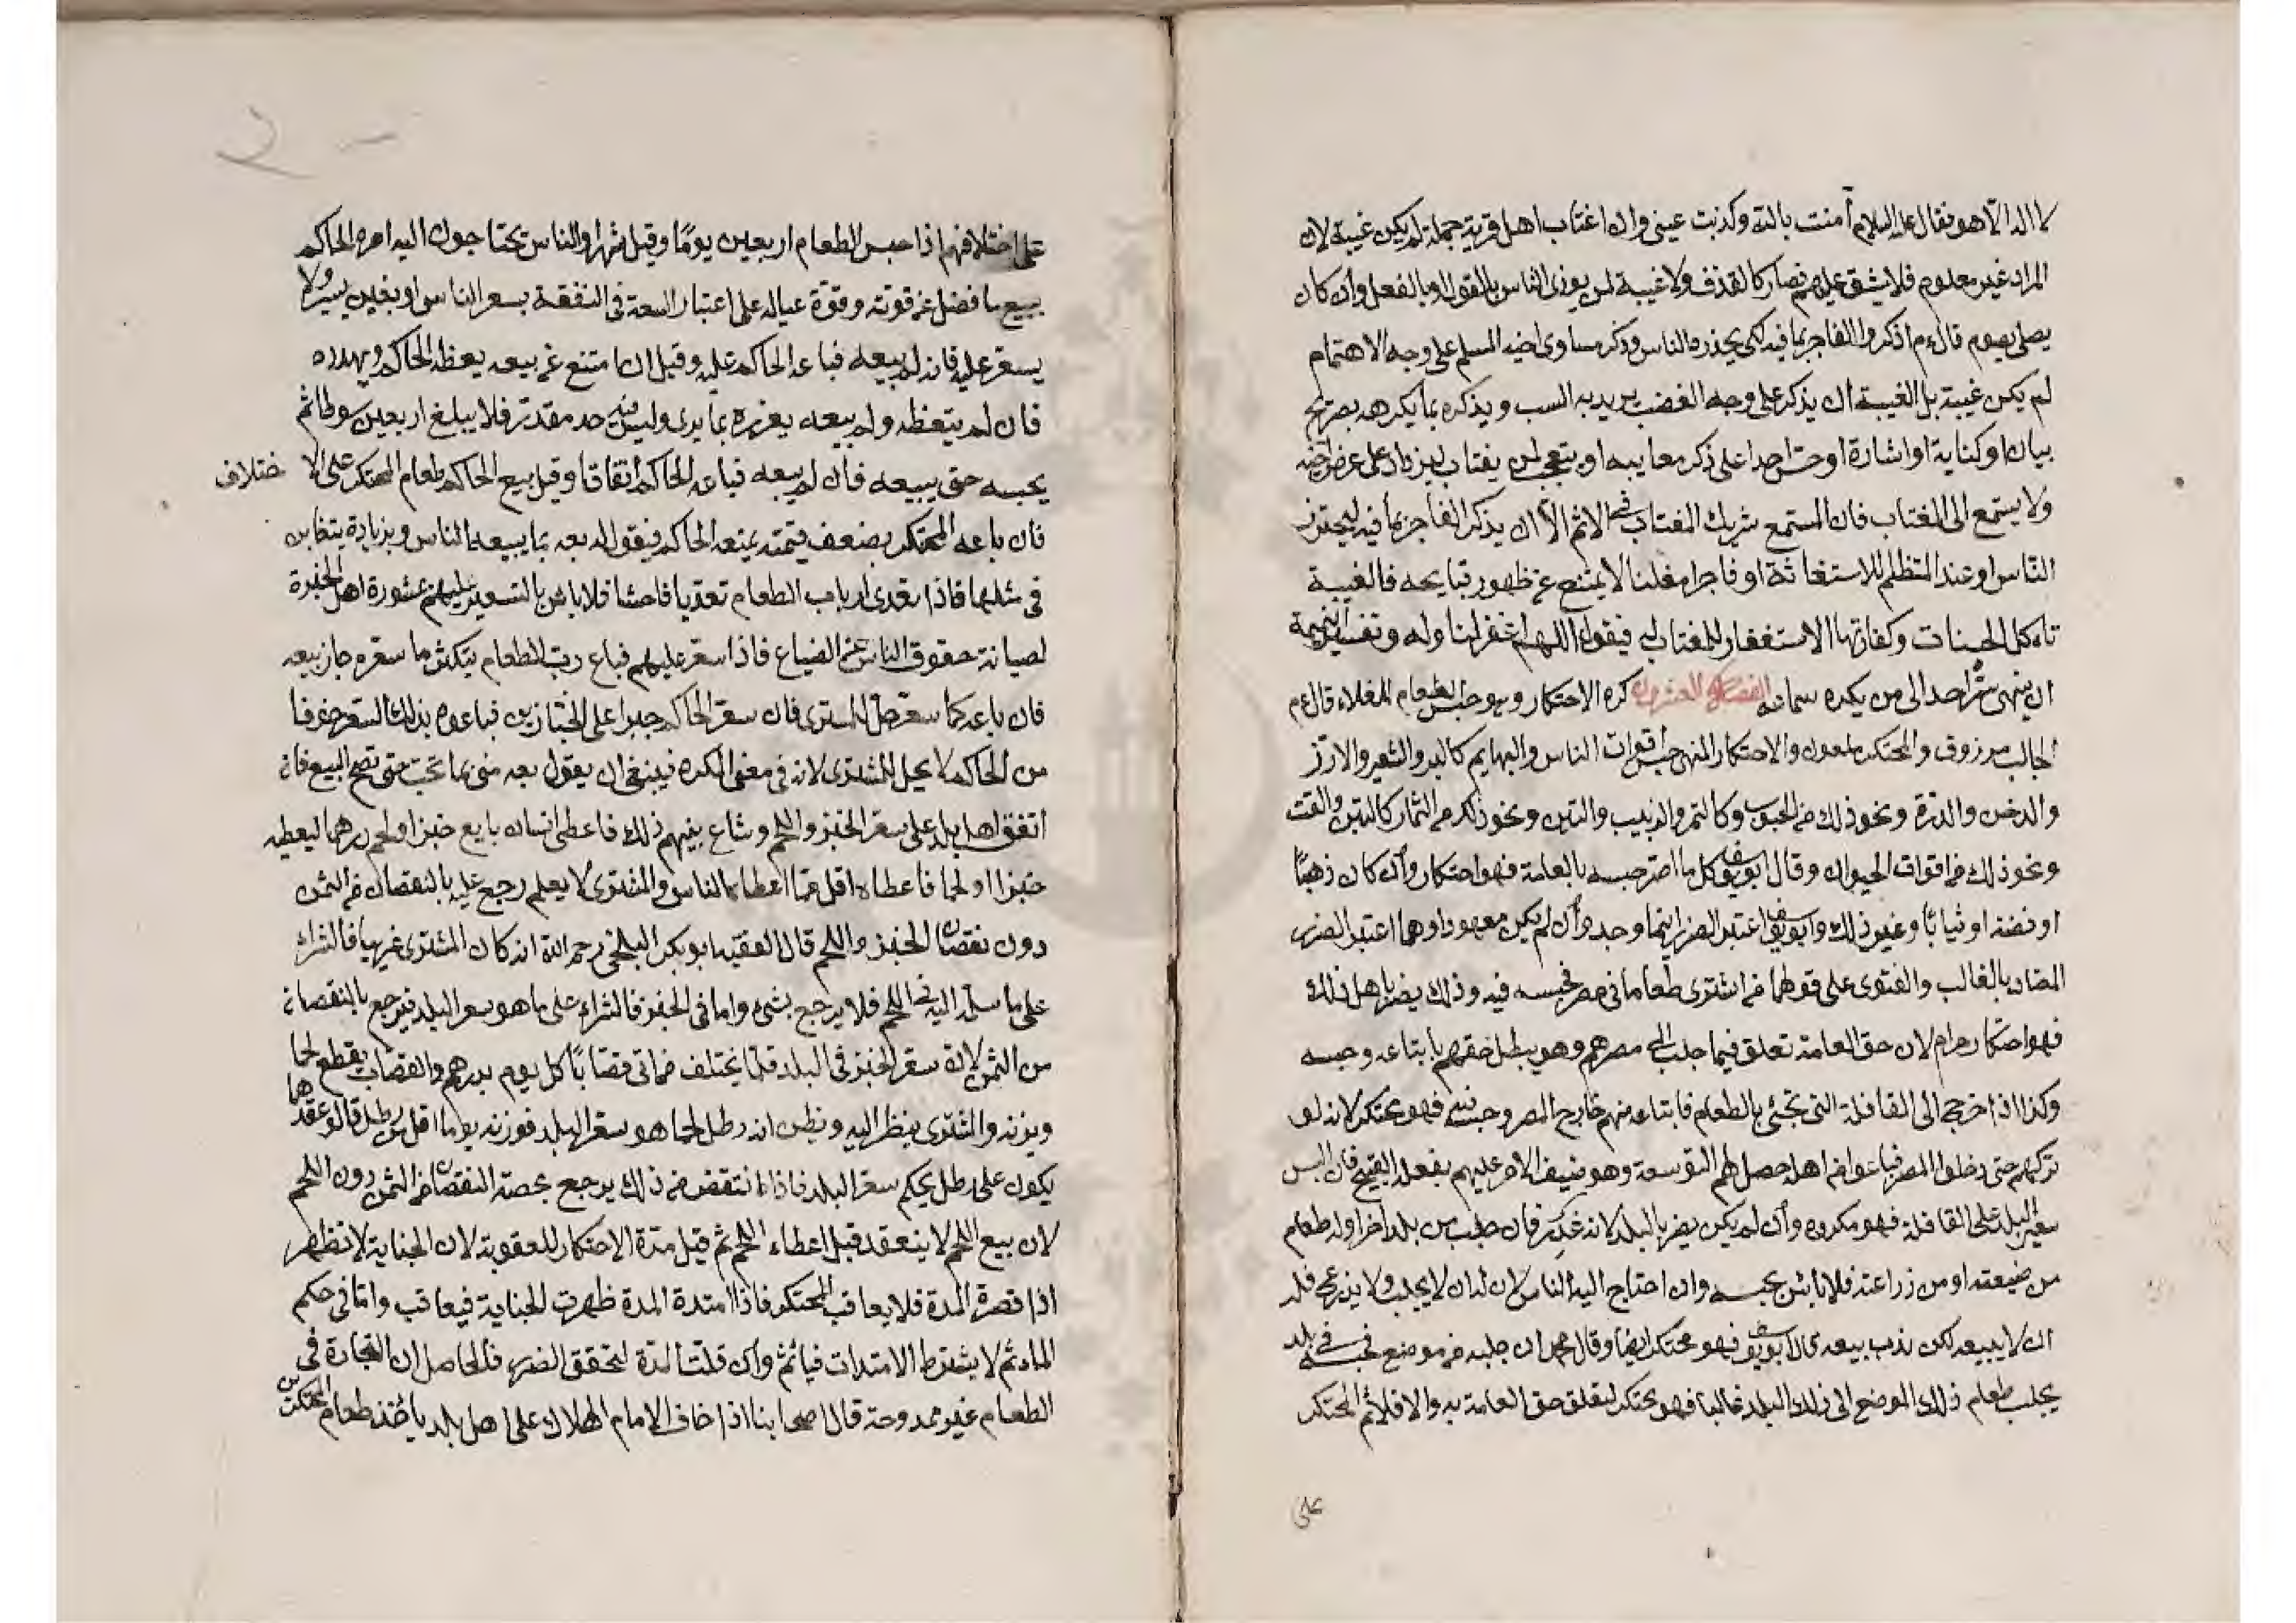 لا اله الا هو فقال عليه السلام آمنت بالله وكذبت عيني وان اغتاب اهل قرية جملة لم يكن غيبة لان
المراد غير معلوم فلا يشق عليهم فصار كالقذف ولا غيبة لمن يوذى الناس بالقول او بالفعل وان كان
يصلى يصوم قال ءم اذكروا الفاجر بما فيه لكى يحذره الناس وذكر مساوى اخيه المسلم على وجه الاهتمام
لم يكن غيبة بل الغيبة ان يذكر على وجه الغضب يريد به السب ويذكره بما يكرهه بصريح
بيان او كناية او اشارة او حث احدا على ذكر معايبه او يتعجب لمن يغتاب ليزداد على عرض اخيه
ولا يستمع الى المغتاب فان المستمع شريك المغتاب فى الاثم الا ان يذكر الفاجر بما فيه ليحترز
الناس او عند المتظلم للاستغاثة او فاجرا معلنا لا يمتنع عن ظهور قبايحه فالغيبة
تاه كل الحسنات وكفارتها الاستغفار للمغتاب له فيقول اللهم اغفر لنا وله وتفسير النميمة
ان ينهى سر احد الى من يكره سماعه الفصل العشرون كره الاحتكار وهو حبس الطعام للغلاء قال ءم
الجالب مرزوق والمحتكر ملعون والاحتكار المنهى حبس اقوات الناس والبهايم كالبر والشعير والارز
والدخن والذرة ونحو ذلك من الحبوب وكالتمر والزبيب والتين ونحو ذلك من الثمار كالتبن والقت
ونحو ذلك من اقوات الحيوان وقال ابويوسف كل ما اضر حبسه بالعامة فهو احتكار وان كان ذهبًا
او فضة او ثيابًا وغير ذلك وابويوسف اعتبر الضرر اينما وجد وان لم يكن معهودا وهما اعتبر الضرر
المضاد بالغالب والفتوى على قولهما فمن اشترى طعاما فى مصر فحبسه فيه وذلك يضر باهل ذلك
فهو احتكار حرام لان حق العامة تعلق فيما جلب الى مصرهم وهو يبطل حقهم بابتاعه وحبسه
وكذا اذا خرج الى القافلة التى تجئى بالطعام فابتاعه منهم خارج المصر وحبسه فهو محتكر لانه لو
تركهم حتى دخلوا المصر فباعوا من اهله حصل لهم التوسعة وهو ضيف الامر عليهم بفعله القبيح فان البس
سعر البلد على القافلة فهو مكروه وان لم يكن يضر بالبلد لانه غدر فان جلب من بلد اخر اوله طعام
من ضيعته او من زراعته فلا بأس بحبسه وان احتاج اليه الناس لان له ان لا يجلب ولا يزرع فله
ان لا يبيعه لكن ندب بيعه قال ابويوسف فهو محتكر ايضا وقال محمد ان جلبه من موضع فحبسه فى بلد
يجلب طعام ذلك الموضع الى ذلك البلد غالبا فهو محتكر لتعلق حق العامة به والا فلا ثم المحتكر
على
على اختلافهم اذا حبس الطعام اربعين يومًا وقيل شهرا والناس يحتاجون اليه امره الحاكم
ببيع ما فضل عن قوته وقوة عياله على اعتبار السعة فى النفقة بسعر الناس او بغبن يسير ولا
يسعر عليه فان لم يبيعه فباعه الحاكم عليه وقيل ان امتنع عن بيعه يعظه الحاكم ويهدده
فان لم يتعظه ولم يبيعه يعزره بما يرى وليس فيه حد مقدر فلا يبلغ اربعين سوطا ثم
يحبسه حتى يبيعه فان لم يبيعه فباعه الحاكم اتفاقا وقيل يبيع الحاكم طعام المحتكر على الا ختلاف
فان باعه المحتكر بضعف قيمته يمنعه الحاكم فيقول له بعه بما يبيعه الناس وبزيادة يتغابن
فى مثلها فاذا تعدى ارباب الطعام تعديا فاحشا فلا باس بالتسعير عليهم بمشورة اهل الخبرة
لصيانة حقوق الناس عن الضياع فاذا سعر عليهم فباع رب الطعام بتكثر ما سعره جاز بيعه
فان باعه كما سعر حل للمشترى فان سعر الحاكم جبرا على الخبازين فباعوه بذلك السعر خوفا
من الحاكم لا يحل للمشترى لانه فى معنى المكره فينبغى ان يقول بعه منى بما تحب حتى تصح البيع فان
اتفق اهل بلد على سعر الخبز واللحم وشاع بينهم ذلك فاعطى انسان بايع خبز او لحم درهما ليعطيه
خبزا او لحما فاعطاه اقل مما اعطاه الناس والمشترى لا يعلم رجع عليه بالنقصان من الثمن
دون نقصان الخبز واللحم قال الفقيه ابو بكر البلخى رحمه الله ان كان المشترى غريبا فالشراء
على ما سلم اليه فى اللحم فلا يرجع بشىء واما فى الخبز فالشراء على ما هو سعر البلد فيرجع بالنقصان
من الثمن لان سعر الخبز فى البلد قلما يختلف فمن اتى قصابًا كل يوم بدرهم والقصاب يقطع لحما
ويزنه والمشترى ينظر اليه ويظن انه رطل لحما هو سعر البلد فوزنه يوما اقل من رطل قالو عقدهما
يكون على رطل بحكم سعر البلد فاذا انتقض من ذلك يرجع بحصة النقصان من الثمن دون اللحم
لان بيع اللحم لا ينعقد قبل اعطاء اللحم ثم قيل مدة الاحتكار للعقوبة لان الجناية لا تظهر
اذا قصرة المدة فلا يعاقب المحتكر فاذا امتدة المدة ظهرت الجناية فيعاقب واما فى حكم
المادثم لا يشترط الامتداد فيأثم وان قلت المدة لتحقق الضرر فالحاصل ان التجارة فى
الطعام غير ممدوحة قال اصحابنا اذا خاف الامام الهلاك على اهل بلد ياخذ طعام المحتكرين